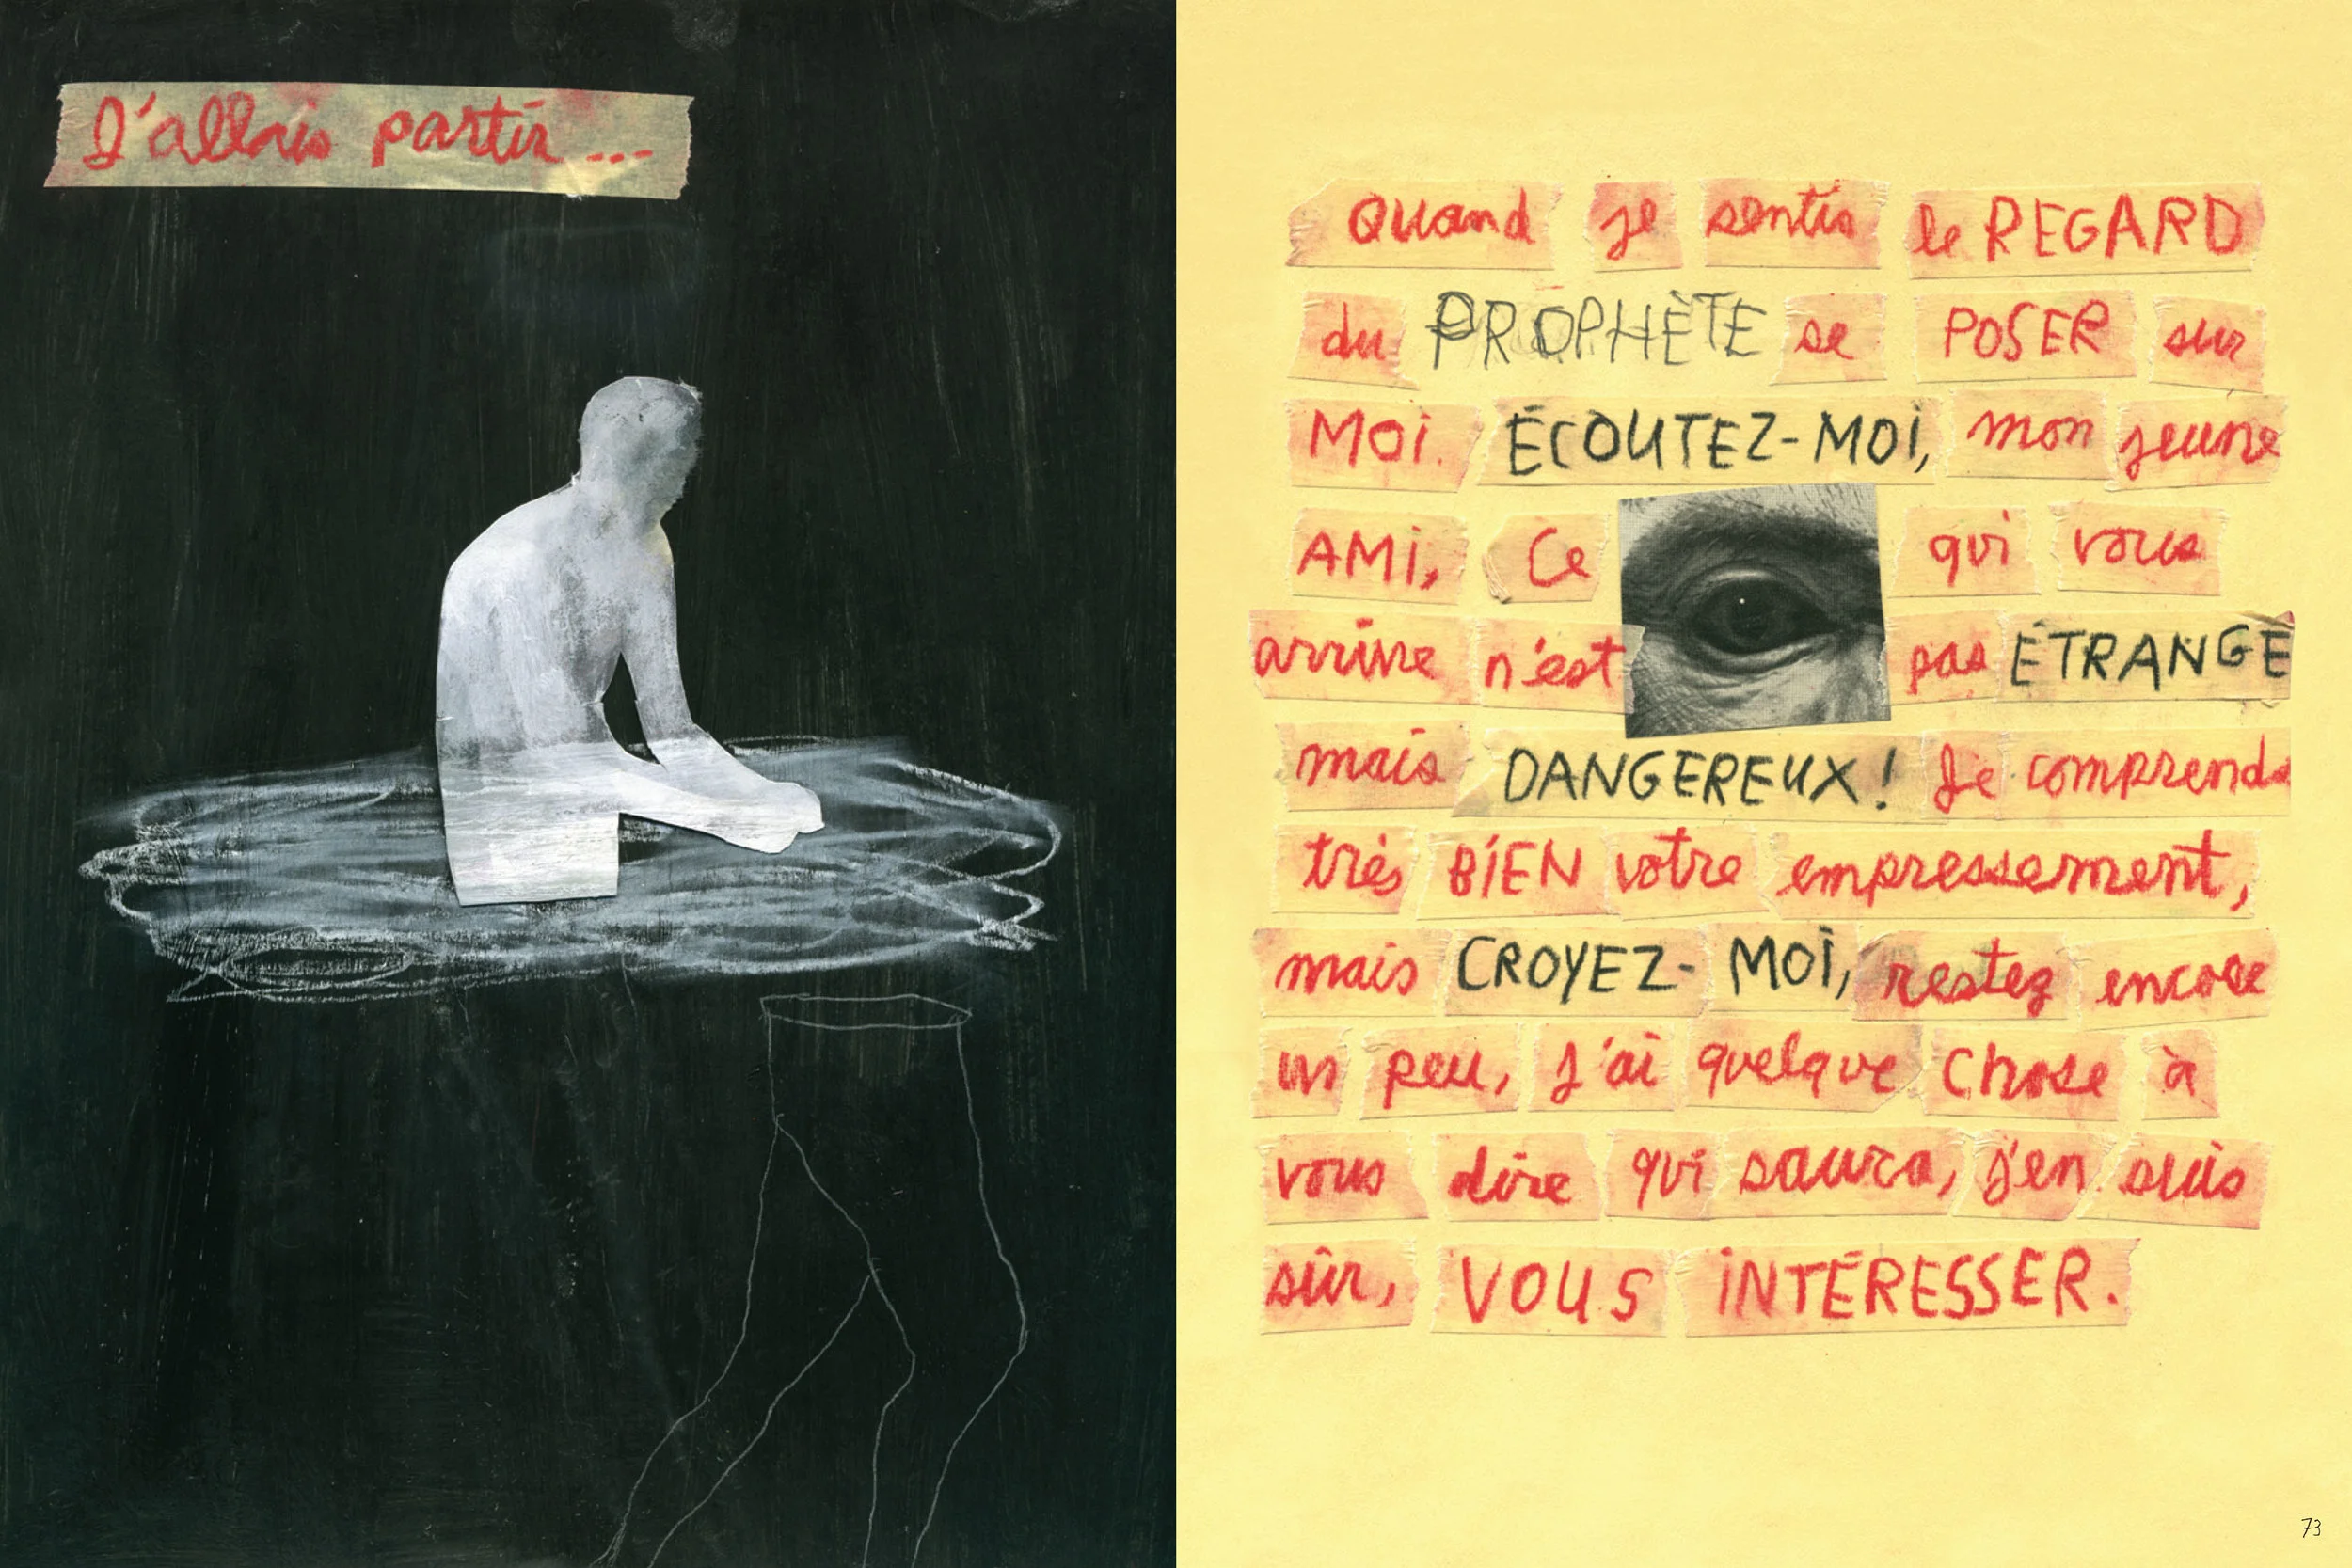 J'allais partir...
Quand je sentis le REGARD
du PROPHÈTE se POSER sur
MOI. ÉCOUTEZ-MOI, mon jeune
AMI, Ce qui vous
arrive n'est pas ÉTRANGE
mais DANGEREUX! Je comprends
très BIEN votre empressement,
mais CROYEZ-MOI, restez encore
un peu, j'ai quelque chose à
vous dire qui saura, j'en suis
sûr, VOUS INTÉRESSER.
73